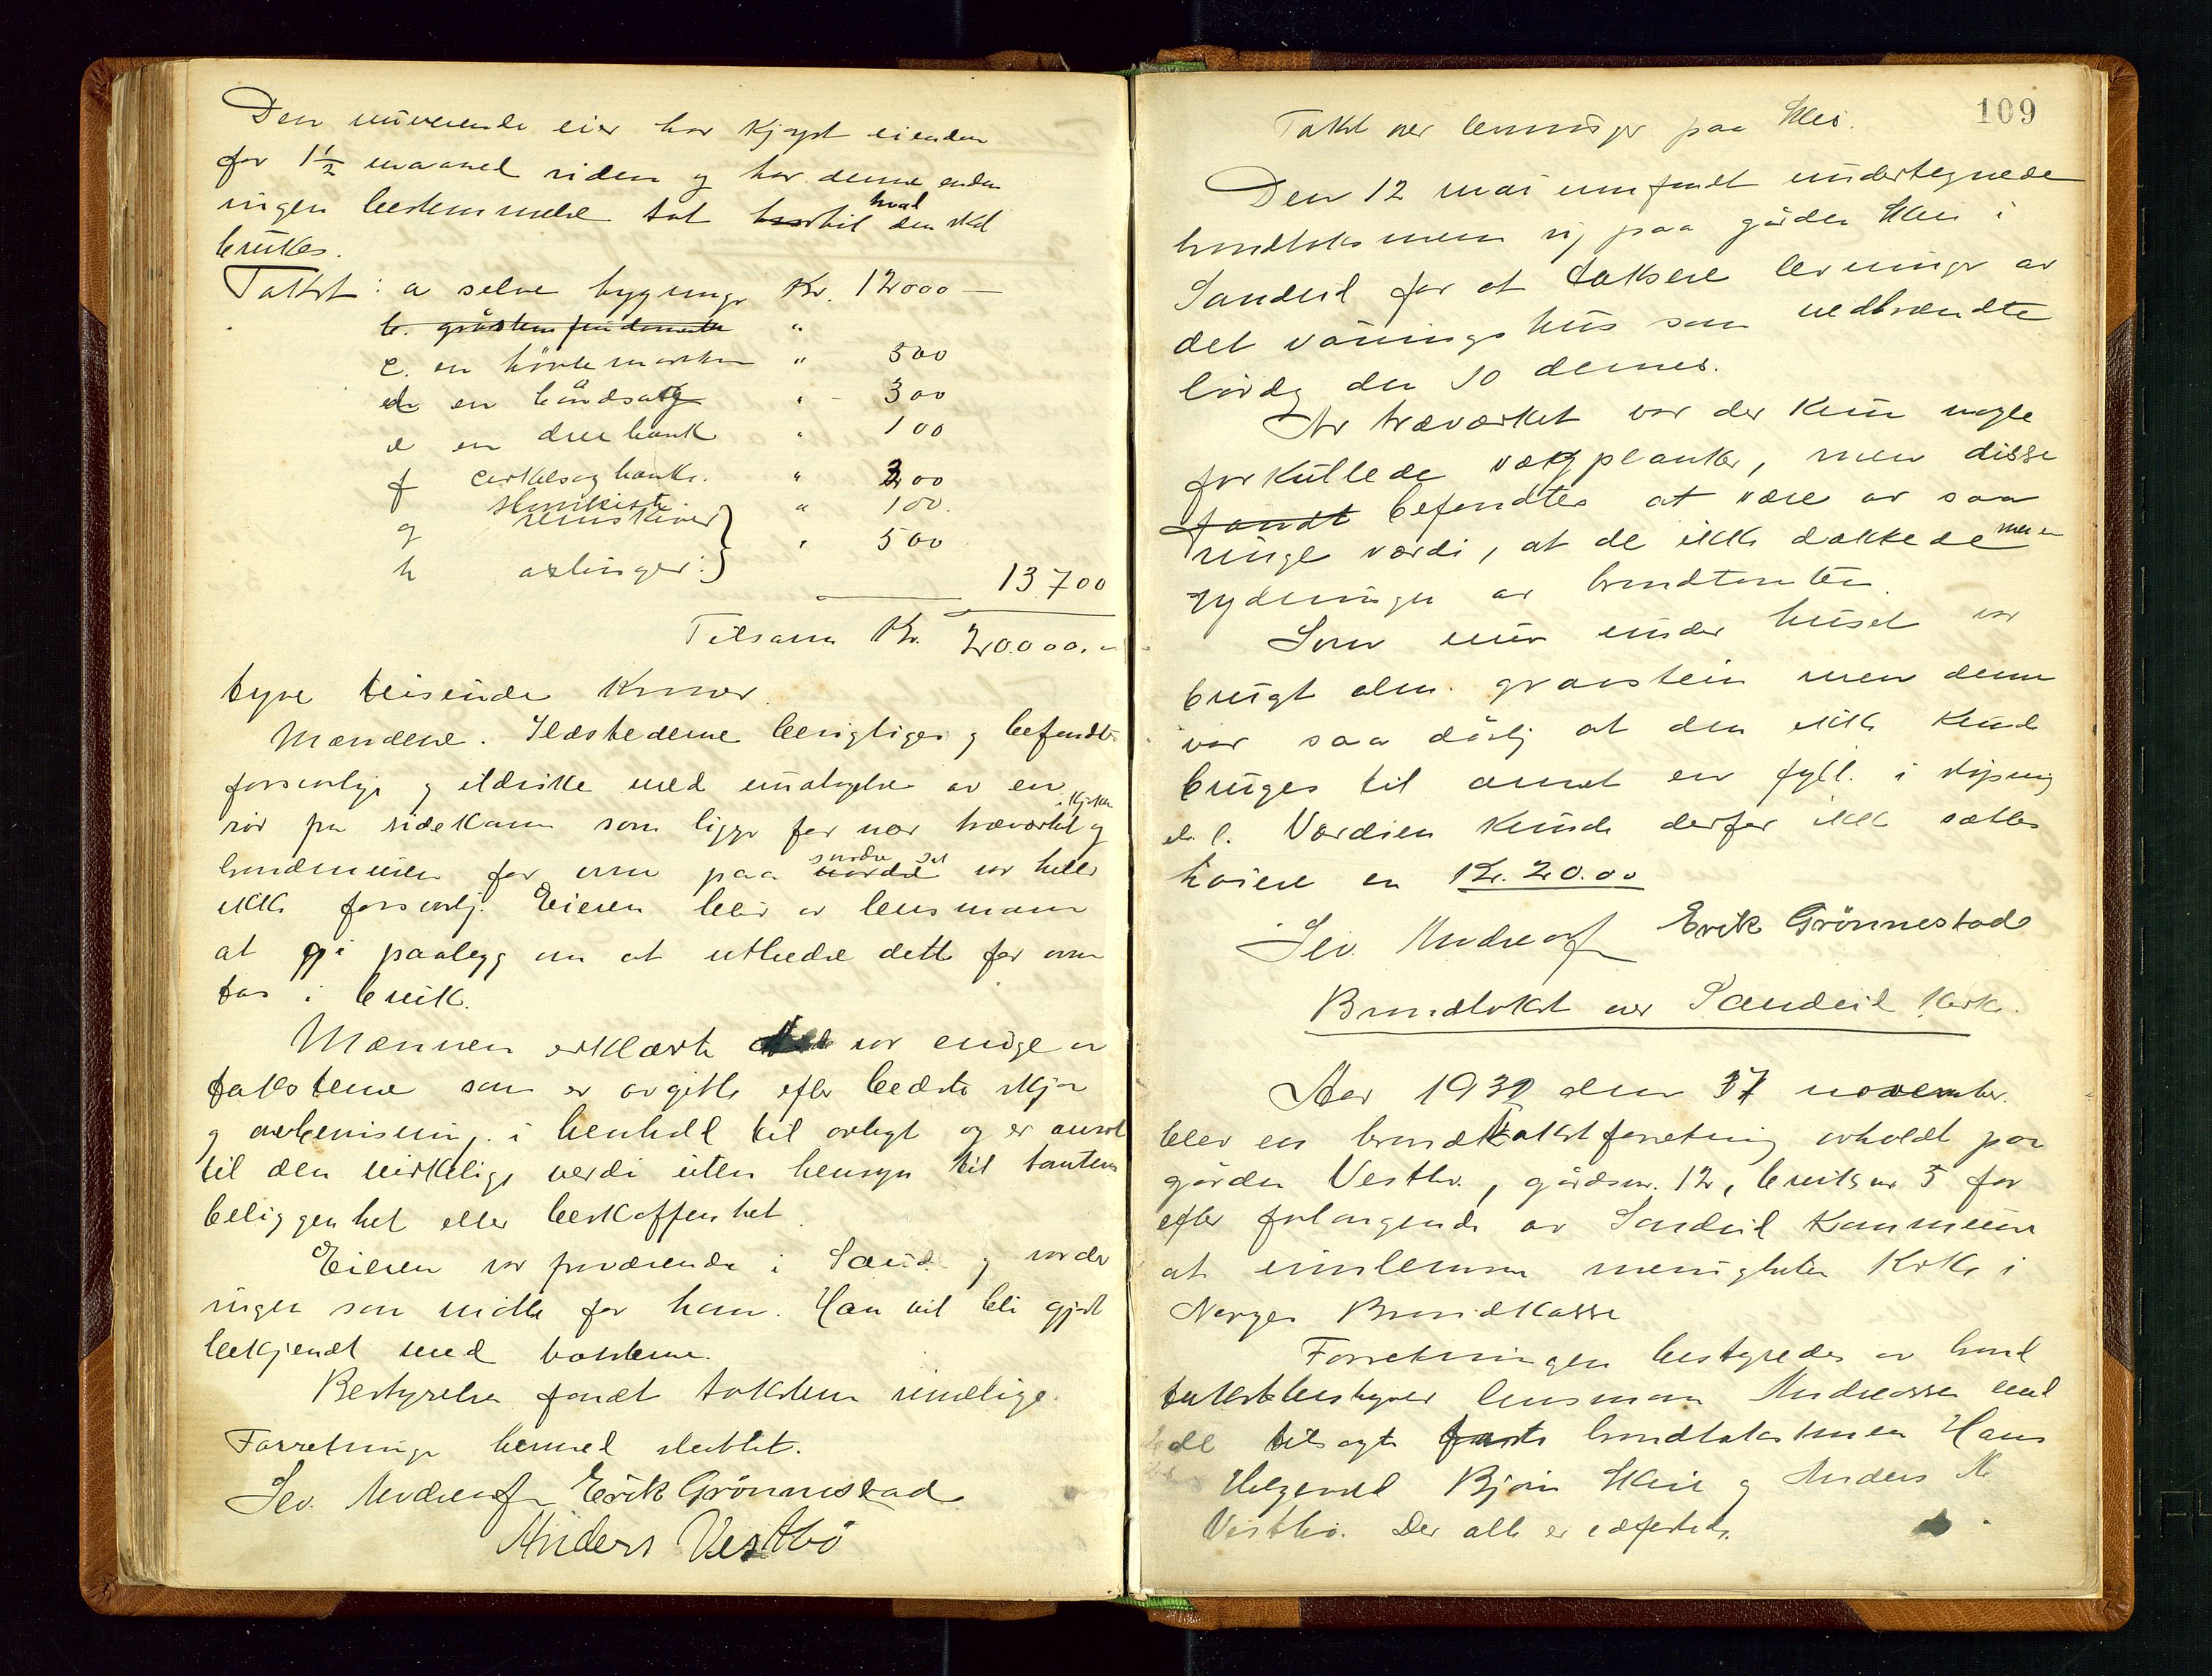 Den nuværende eier har kjøpt eiendom
for 1½ maaned siden og har denne endnu
ingen bestemmelse tat hvortil hvad den skal
brukes.
Takst: a selve bygninge Kr. 12000 —
b. gråstens fundamentn "
c. en hövlemaskin " 500
d en båndsag " 300
e en dreibænk " 100
f cirkelsag bænk. " 300
slumkiste " 100.
g remskiver } " 500
h axlinger.
13700
Tilsam Kr. 20.000.–
tyve tusinde kroner.
Mændene. Ildstederne besigtiges og befandtes
forsvarlige og ildsikre med undtagelse av en
rör fra sidekam som ligger for nær træværket i kjøken og
brandmuren for ovn paa nordre söndre sal var heller
ikke forsvarlig. Eieren blev av lensmann
at gi paalegg om at utbedre dette før ovn
tas i bruk.
Mænnen erklærte var enige om
takstene som er avgitt efter bedste skjøn
og overbevisning i henhold til avlagt og er ansat
til den virkelige verdi uten hensyn til tomtens
beliggenhet eller beskaffenhet.
Eieren var fraværende i Sand og var der
ingen som møtte for ham. Han vil bli gjort
bekjendt med taksterne.
Bestyrelse fandt taksten rimelige.
Forretninge hermed sluttet.
Sev. Andreassen Erik Grönnestad
Anders Vestbö
109
Takst over levninger paa Øklei.
Den 12 mai innfandt undertegnede
brandtaksmenn sig paa gården i
Sandeid for at taksere levninger av
det våningshus som nedbrændte
lördag den 10 dennes.
Av træværket var der kun nogle
forkullede vægplanker, men disse
fandt befandtes at være av saa
ringe værdi, at de ikke dækkede mer en
rydningen av brandtomten.
Som mur under huset var
brugt alm. graastein men denne
var saa dårlig at den ikke kunde
bruges til annet en fyll. i
el. l. Værdien kunde derfor ikke sættes
höiere en Kr. 20.00
Sev. Andreassen Erik Grönnestad
Brandtakst over Sandeid kirke.
Aar 1931 den 37 november.
blev en brandtakstforretning avholdt paa
gården Vestbö, gårdsnr. 12, bruksnr 5 for
efter forlangende av Sandeid kommune
at innlemme menigheten kirke i
Norges Brandkasse
Forretningen bestyredes av brand
takstbestyrer lensmann Andreassen med
tilsagte faste brandtakstmen Hans
Helgevold Bjørn og Anders K.
Vestbö. Der alle er edfestede.